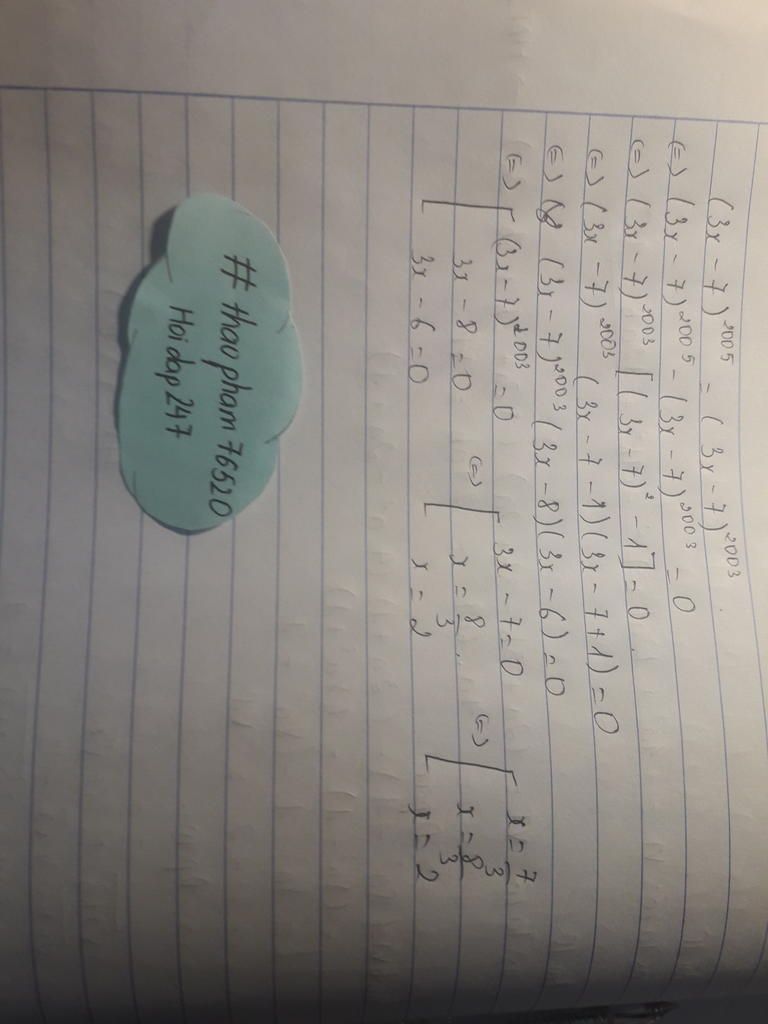 (3x - 7)²⁰⁰⁵ = (3x - 7)²⁰⁰³
(=) (3x - 7)²⁰⁰⁵ - (3x - 7)²⁰⁰³ = 0
(=) (3x - 7)²⁰⁰³ [(3x - 7)² - 1] = 0
(=) (3x - 7)²⁰⁰³ (3x - 7 - 1)(3x - 7 + 1) = 0
(=) (3x - 7)²⁰⁰³ (3x - 8)(3x - 6) = 0
(=) [ (3x - 7)²⁰⁰³ = 0 (=) [ 3x - 7 = 0 (=) [ x = 7/3
3x - 8 = 0 x = 8/3 x = 8/3
3x - 6 = 0 x = 2 x = 2
# thaopham76520
Hoidap247